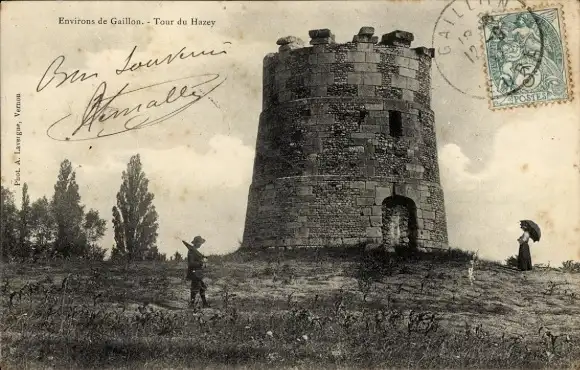 Environs de Gaillon. - Tour du Hazey
Bon souvenir
Phot. A. Lavergne, Vernon
GAILLON
5